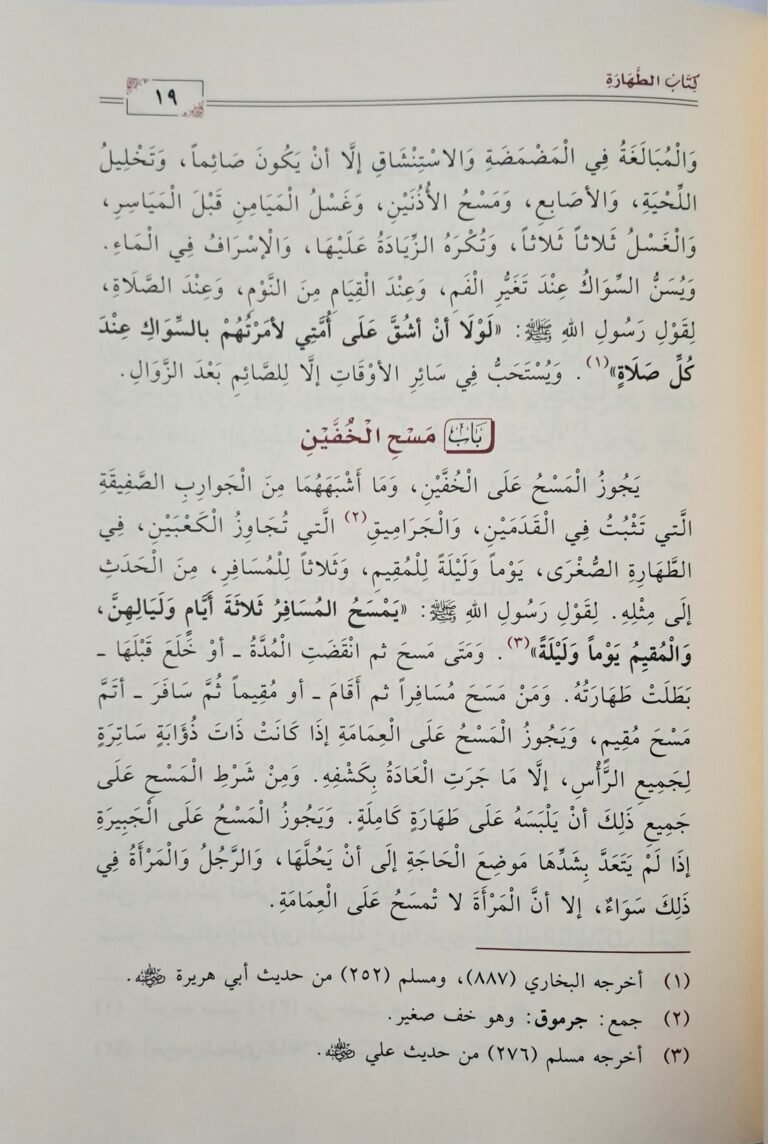 كِتَابُ الطَّهَارَةِ
١٩
وَالْمُبَالَغَةُ فِي الْمَضْمَضَةِ وَالاسْتِنْشَاقِ إلَّا أنْ يَكُونَ صَائِماً، وَتَخْلِيلُ
اللِّحْيَةِ، وَالأصَابِعِ، وَمَسْحُ الأُذُنَيْنِ، وَغَسْلُ الْمَيَامِنِ قَبْلَ الْمَيَاسِرِ،
وَالْغَسْلُ ثَلَاثاً ثَلَاثاً، وَتُكْرَهُ الزِّيَادَةُ عَلَيْهَا، وَالْإسْرَافُ فِي الْمَاءِ.
وَيُسَنُّ السِّوَاكُ عِنْدَ تَغَيُّرِ الْفَمِ، وَعِنْدَ الْقِيَامِ مِنَ النَّوْمِ، وَعِنْدَ الصَّلَاةِ،
لِقَوْلِ رَسُولِ اللهِ ﷺ: «لَوْلَا أنْ أشُقَّ عَلَى أُمَّتِي لأمَرْتُهُمْ بالسِّوَاكِ عِنْدَ
كُلِّ صَلَاةٍ»(١). وَيُسْتَحَبُّ فِي سَائِرِ الأوْقَاتِ إلَّا لِلصَّائِمِ بَعْدَ الزَّوَالِ.
بَابُ مَسْحِ الْخُفَّيْنِ
يَجُوزُ الْمَسْحُ عَلَى الْخُفَّيْنِ، وَمَا أَشْبَهَهُمَا مِنَ الْجَوارِبِ الصَّفِيقَةِ
الَّتي تَثْبُتُ فِي الْقَدَمَيْنِ، وَالْجَرَامِيقِ(٢) الَّتي تُجَاوِزُ الْكَعْبَيْنِ، فِي
الطَّهَارَةِ الصُّغْرَى، يَوْماً وَلَيْلَةً لِلْمُقِيمِ، وَثَلَاثاً لِلْمُسَافِرِ، مِنَ الْحَدَثِ
إلَى مِثْلِهِ. لِقَوْلِ رَسُولِ اللهِ ﷺ: «يَمْسَحُ المُسَافِرُ ثَلَاثَةَ أَيَّامٍ وَلَيَالِهِنَّ،
وَالْمُقيِمُ يَوْماً وَلَيْلَةً»(٣). وَمَتَى مَسحَ ثم انْقَضَتِ الْمُدَّةُ ـ أوْ خَلَعَ قَبْلَهَا ـ
بَطَلَتْ طَهَارَتُهُ. وَمَنْ مَسَحَ مُسَافِراً ثم أقَامَ ـ أو مُقِيماً ثُمَّ سَافَرَ ـ أتَمَّ
مَسْحَ مُقِيمٍ، وَيَجُوزُ الْمَسْحُ عَلَى الْعِمَامَةِ إذَا كَانَتْ ذَاتَ ذُؤَابَةٍ سَاتِرَةٍ
لِجَمِيعِ الرَّأْسِ، إلَّا مَا جَرَتِ الْعَادَةُ بِكَشْفِهِ. وَمِنْ شَرْطِ الْمَسْحِ عَلَى
جَمِيعِ ذَلِكَ أنْ يَلْبَسَهُ عَلَى طَهَارَةٍ كَامِلَةٍ. وَيَجُوزُ الْمَسْحُ عَلَى الْجَبِيرَةِ
إذَا لَمْ يَتَعَدَّ بِشَدِّهَا مَوضِعَ الْحَاجَةِ إلَى أنْ يَحُلَّهَا، وَالرَّجُلُ وَالْمَرْأَةُ فِي
ذَلِكَ سَوَاءٌ، إلا أنَّ الْمَرْأَةَ لا تْمسَحُ عَلَى الْعِمَامَةِ.
(١) أخرجه البخاري (٨٨٧)، ومسلم (٢٥٢) من حديث أبي هريرة ﵁.
(٢) جمع: جرموق: وهو خف صغير.
(٣) أخرجه مسلم (٢٧٦) من حديث علي ﵁.